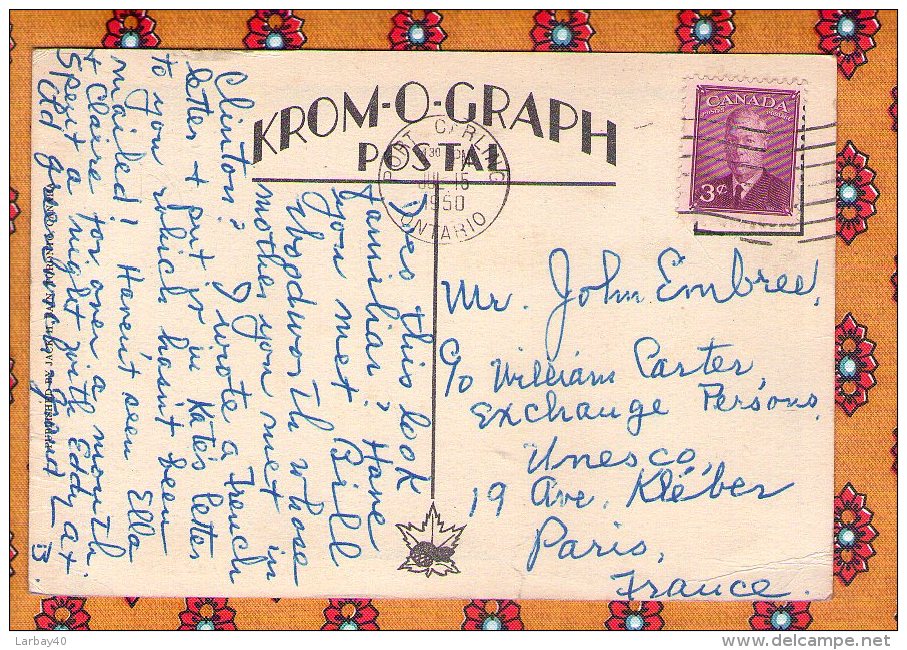 KROM-O-GRAPH
POSTAL
CANADA
3¢
PORT CARLING
JUL 15
1950
ONTARIO
Does this look
familiar? Have
you met Bill
whose
mother you met in
Clinton? I wrote a French
letter & put it in Kate's letter
to you which hasn't been
mailed! Haven't seen Ella
& Claire for over a month.
Spent a night with Eddy at
Old
B.
Mr. John Embree,
c/o William Carter,
Exchange Persons,
Unesco,
19 Ave. Kléber
Paris,
France.
Larbay40
delcampe.net